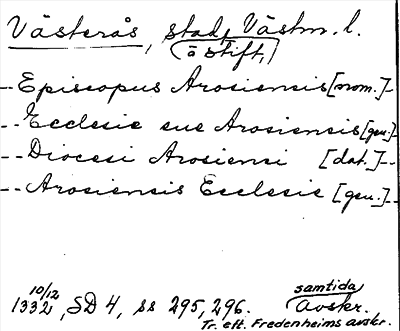 Västerås, stad, Västm. l.
(ö stift,)
-- Episcopus Arosiensis [nom.] --
-- Ecclesie sue Arosiensis [gen.]
-- Diocesi Arosiensi [dat.] --
-- Arosiensis Ecclesie [gen.] --
samtida
10/12 1332, SD 4, ss 295, 296. avskr.
Tr. eft. Fredenheims avskr.